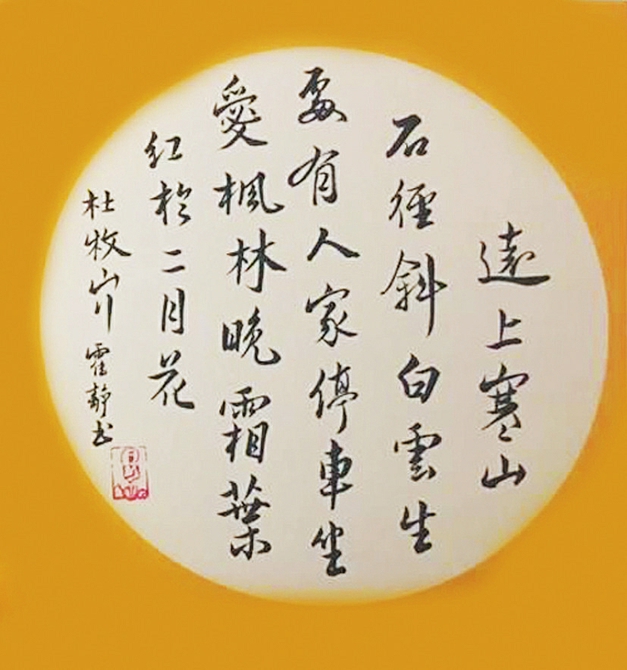 遠上寒山
石徑斜白雲生
處有人家停車坐
愛楓林晚霜葉
紅於二月花
杜牧山行 霍靜书